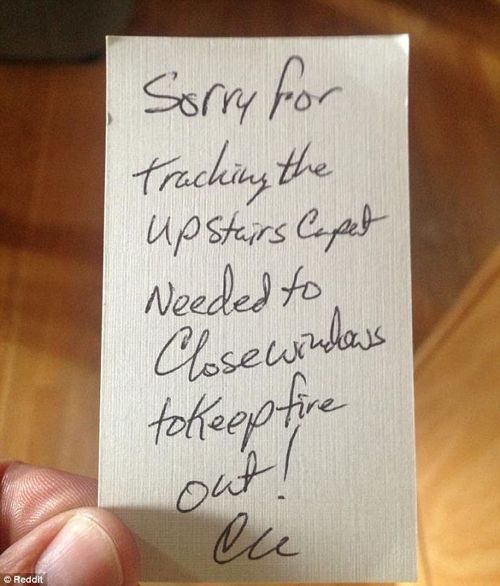 Sorry for
tracking the
upstairs Carpet
Needed to
Close windows
to Keep fire
out!
© Reddit